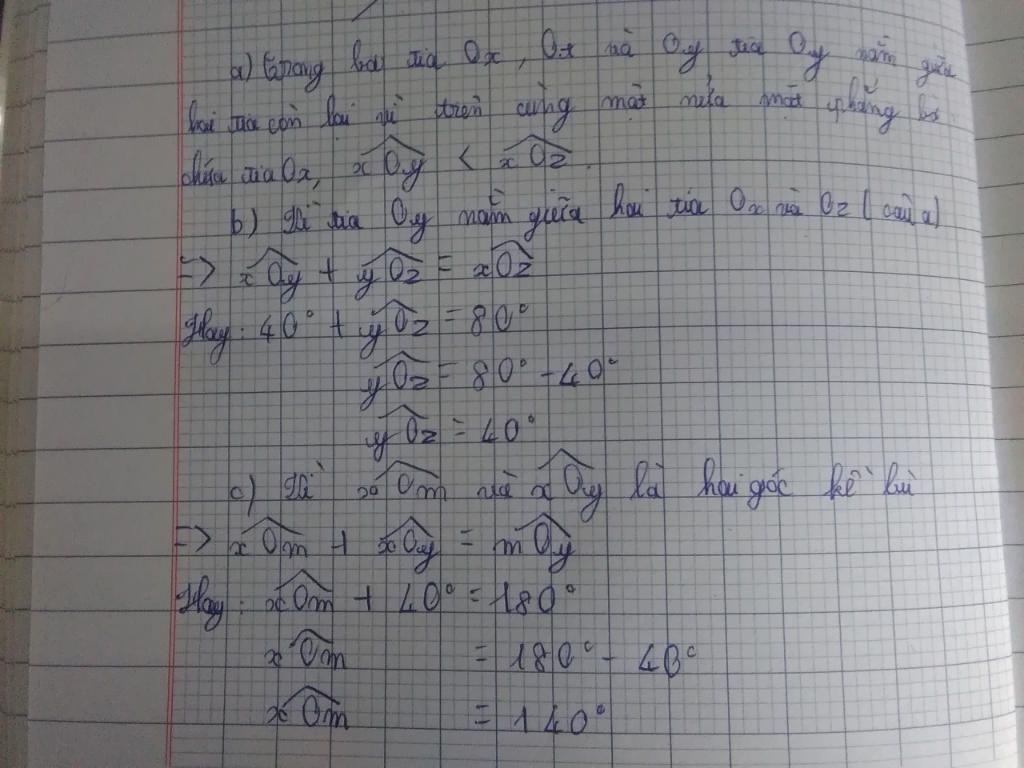 a) Trong ba tia Ox, Oz và Oy tia Oy nằm giữa
hai tia còn lại vì trên cùng một nửa mặt phẳng bờ
chứa tia Ox, xOy < xOz.
b) Vì tia Oy nằm giữa hai tia Ox và Oz (câu a)
=> xOy + yOz = xOz
Hay : 40° + yOz = 80°
yOz = 80° - 40°
yOz = 40°
c) Vì xOm và xOy là hai góc kề bù
=> xOm + xOy = mOy
Hay : xOm + 40° = 180°
xOm = 180° - 40°
xOm = 140°